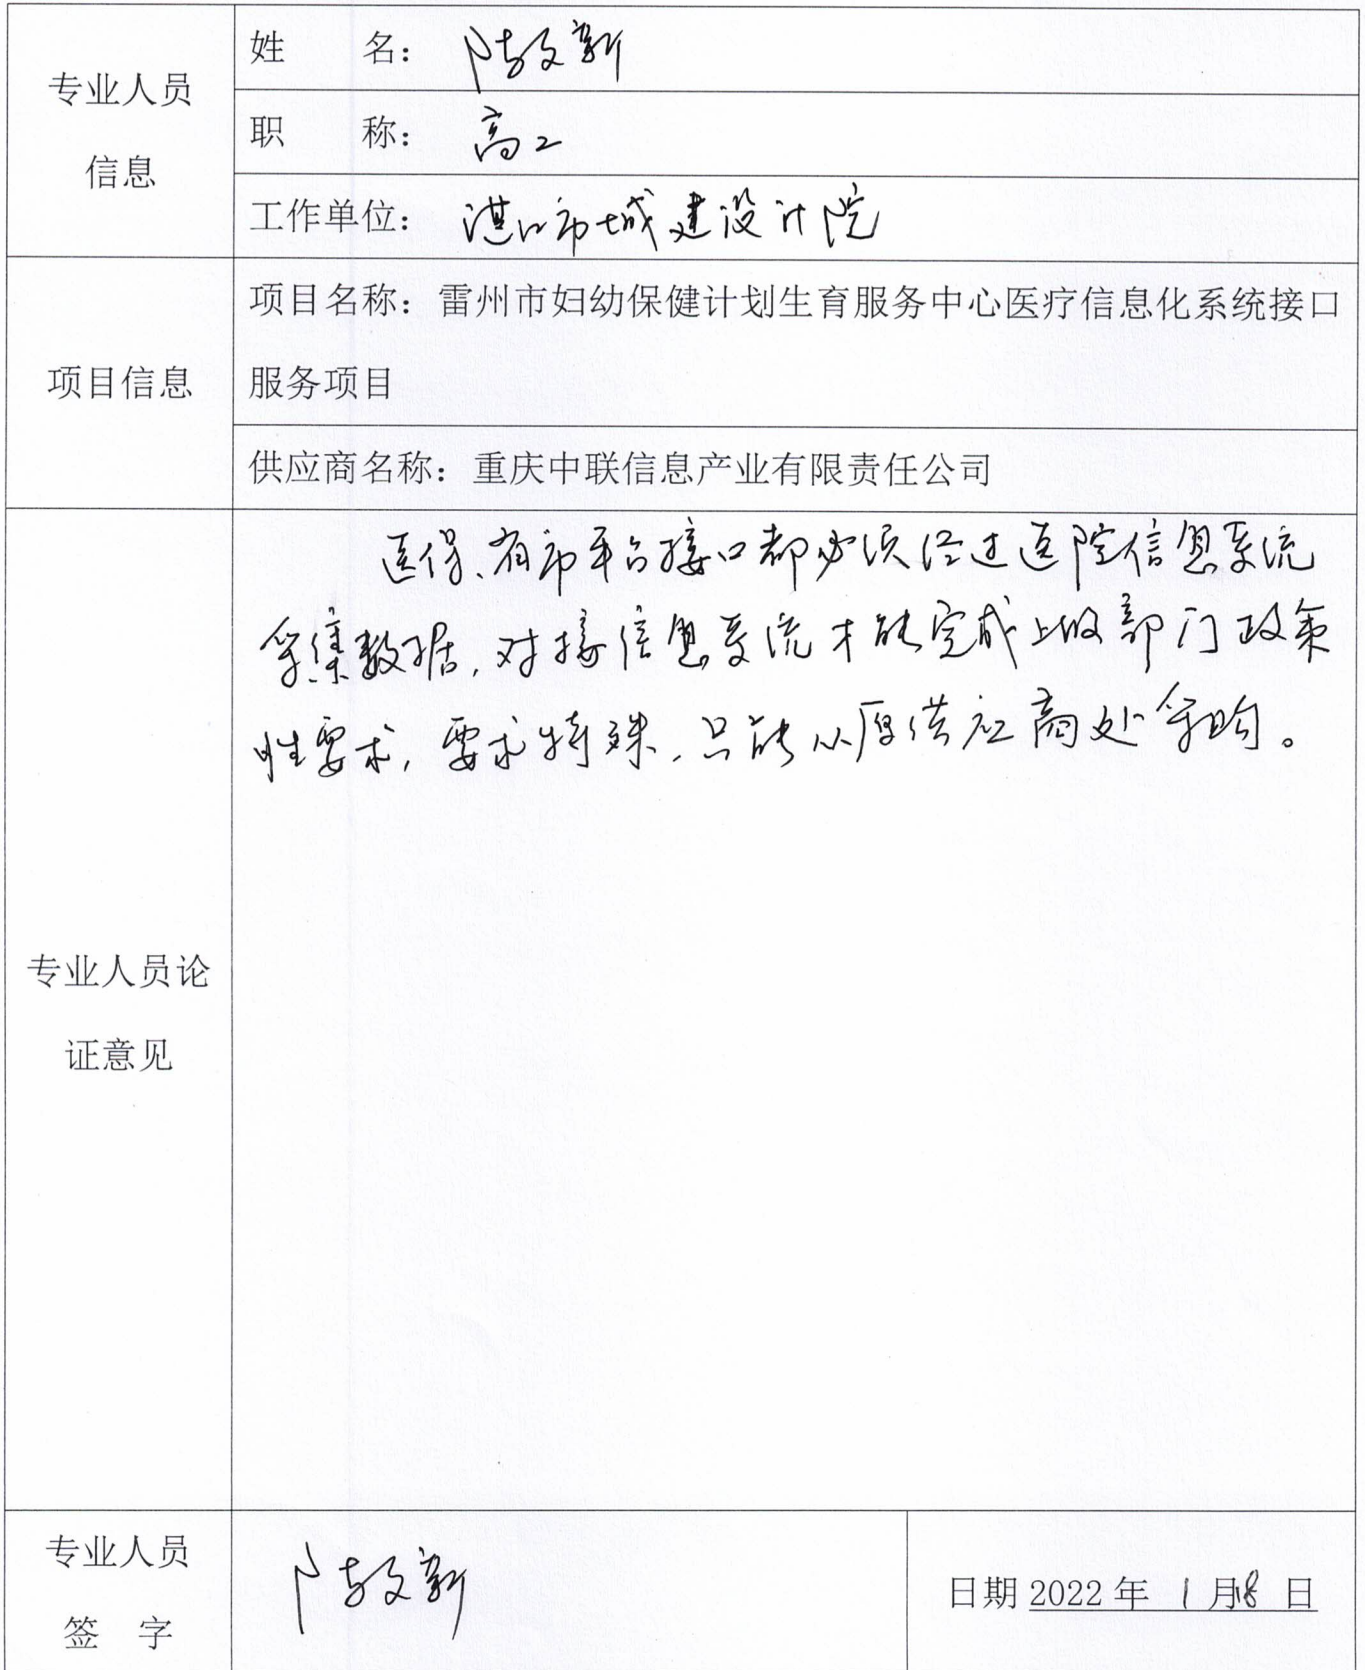 专业人员
信息
姓 名：
职 称：高工
工作单位：湛江市城建设计院
项目信息
项目名称：雷州市妇幼保健计划生育服务中心医疗信息化系统接口
服务项目
供应商名称：重庆中联信息产业有限责任公司
专业人员论
证意见
医保、省市平台接口都必须经过医院信息系统
采集数据，对接信息系统才能完成上级部门政策
性要求，要求特殊，只能从原供应商处采购。
专业人员
签 字
日期 2022 年 1 月 18 日